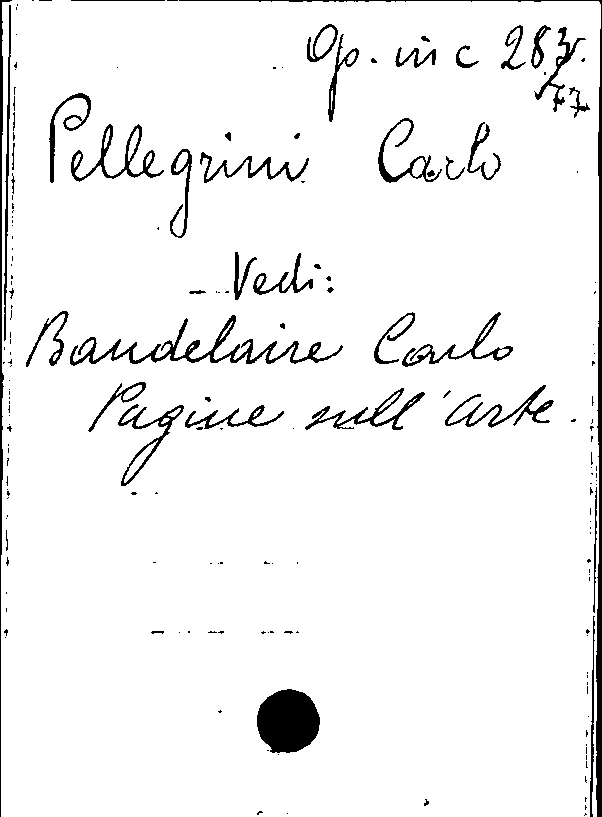 Op. in c 283.
77
Pellegrini Carlo
Vedi:
Baudelaire Carlo
Pagine sull'arte.